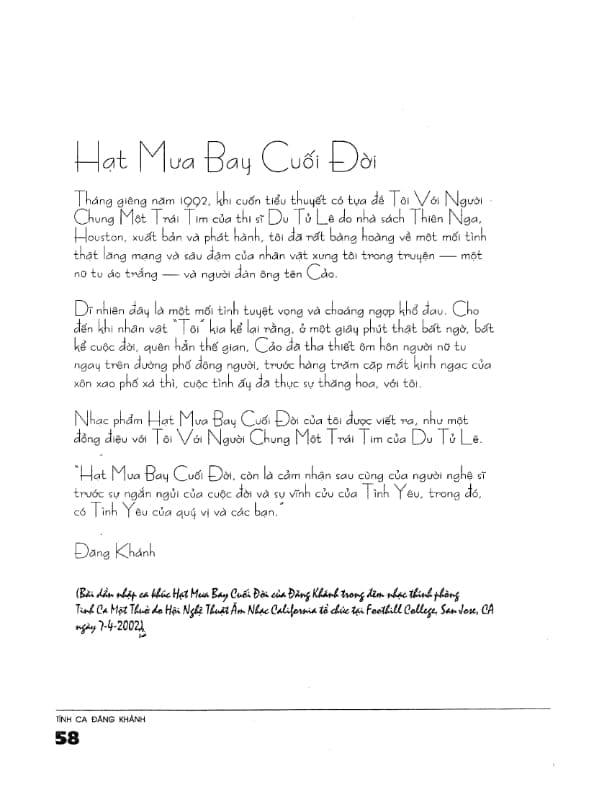 Hạt Mưa Bay Cuối Đời
Tháng giêng năm 1992, khi cuốn tiểu thuyết có tựa đề Tôi Với Người
Chung Một Trái Tim của thi sĩ Du Tử Lê do nhà sách Thiên Nga,
Houston, xuất bản và phát hành, tôi đã rất bàng hoàng về một mối tình
thật lãng mạng và sâu đậm của nhân vật xưng tôi trong truyện — một
nữ tu áo trắng — và người đàn ông tên Cảo.
Dĩ nhiên đây là một mối tình tuyệt vọng và choáng ngợp khổ đau. Cho
đến khi nhân vật "Tôi" kia kể lại rằng, ở một giây phút thật bất ngờ, bất
kể cuộc đời, quên hẳn thế gian, Cảo đã tha thiết ôm hôn người nữ tu
ngay trên đường phố đông người, trước hàng trăm cặp mắt kinh ngạc của
xôn xao phố xá thì, cuộc tình ấy đã thực sự thăng hoa, với tôi.
Nhạc phẩm Hạt Mưa Bay Cuối Đời của tôi được viết ra, như một
đồng điệu với Tôi Với Người Chung Một Trái Tim của Du Tử Lê.
"Hạt Mưa Bay Cuối Đời, còn là cảm nhận sau cùng của người nghệ sĩ
trước sự ngắn ngủi của cuộc đời và sự vĩnh cửu của Tình Yêu, trong đó,
có Tình Yêu của quý vị và các bạn."
Đăng Khánh
(Bài dẫn nhập ca khúc Hạt Mưa Bay Cuối Đời của Đăng Khánh trong đêm nhạc thính phòng
Tình Ca Một Thuở do Hội Nghệ Thuật Âm Nhạc California tổ chức tại Foothill College, San Jose, CA
ngày 7-4-2002)
TÌNH CA ĐĂNG KHÁNH
58